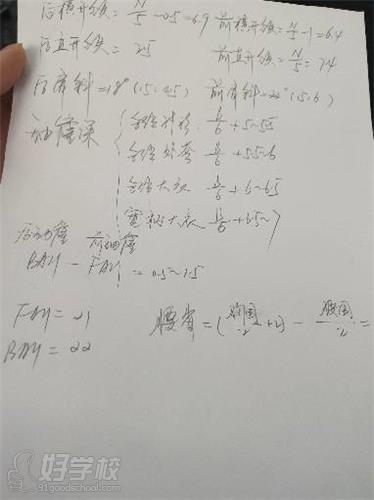 后横开领 = N/5 - 0.5 = 6.9 前横开领 = N/5 - 1 = 6.4
后直开领 = 2.5 前直开领 = N/5 = 7.4
后肩斜 = 18° (15:4.5) 前肩斜 = 22° (15:6)
袖窿深
合体衬衫 B/6 + 5~5.5
合体外套 B/6 + 5.5~6
合体大衣 B/6 + 6~6.5
宽松大衣 B/6 + 6.5~7
后袖窿 前袖窿
BAH - FAH = 0.5~1.5
FAH = 21
BAH = 22
腰省 = (胸围/2 + 2) - 腰围/2 =
好学校
www.91goodschool.com